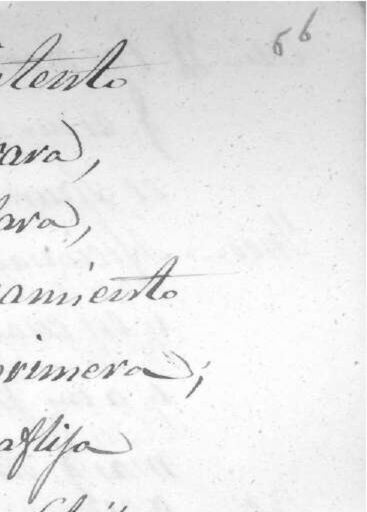 56
itento
vara,
lara,
amiento
primera;
aflija